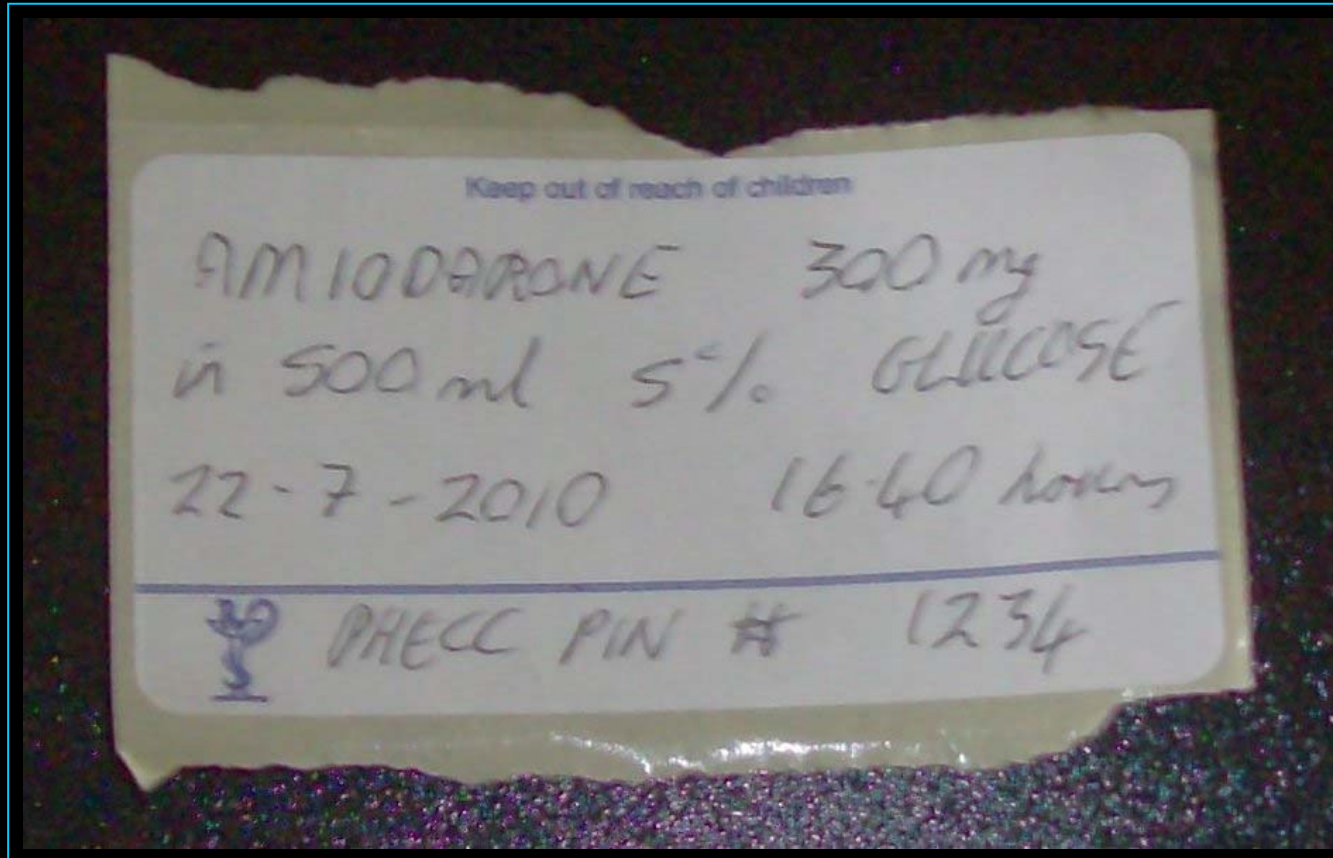 Keep out of reach of children
AMIODARONE 300 mg
in 500 ml 5% GLUCOSE
22-7-2010 16.40 hours
PHECC PIN # 1234